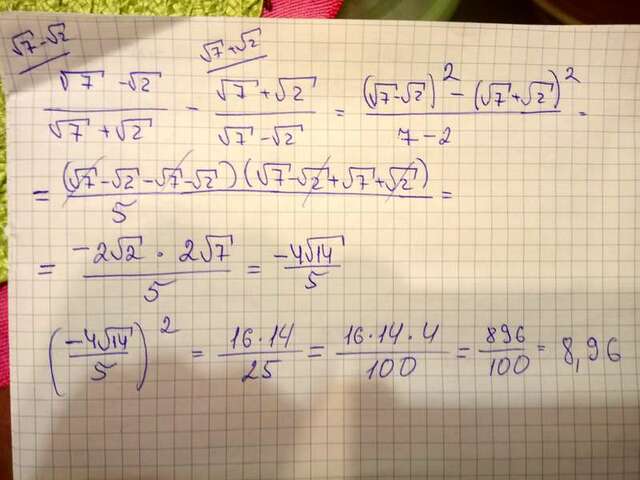 √7-√2 √7+√2
(√7-√2)/(√7+√2) - (√7+√2)/(√7-√2) = ((√7-√2)² - (√7+√2)²)/(7-2) =
= ((√7-√2-√7-√2)(√7-√2+√7+√2))/5 =
= (-2√2·2√7)/5 = (-4√14)/5
((-4√14)/5)² = (16·14)/25 = (16·14·4)/100 = 896/100 = 8,96